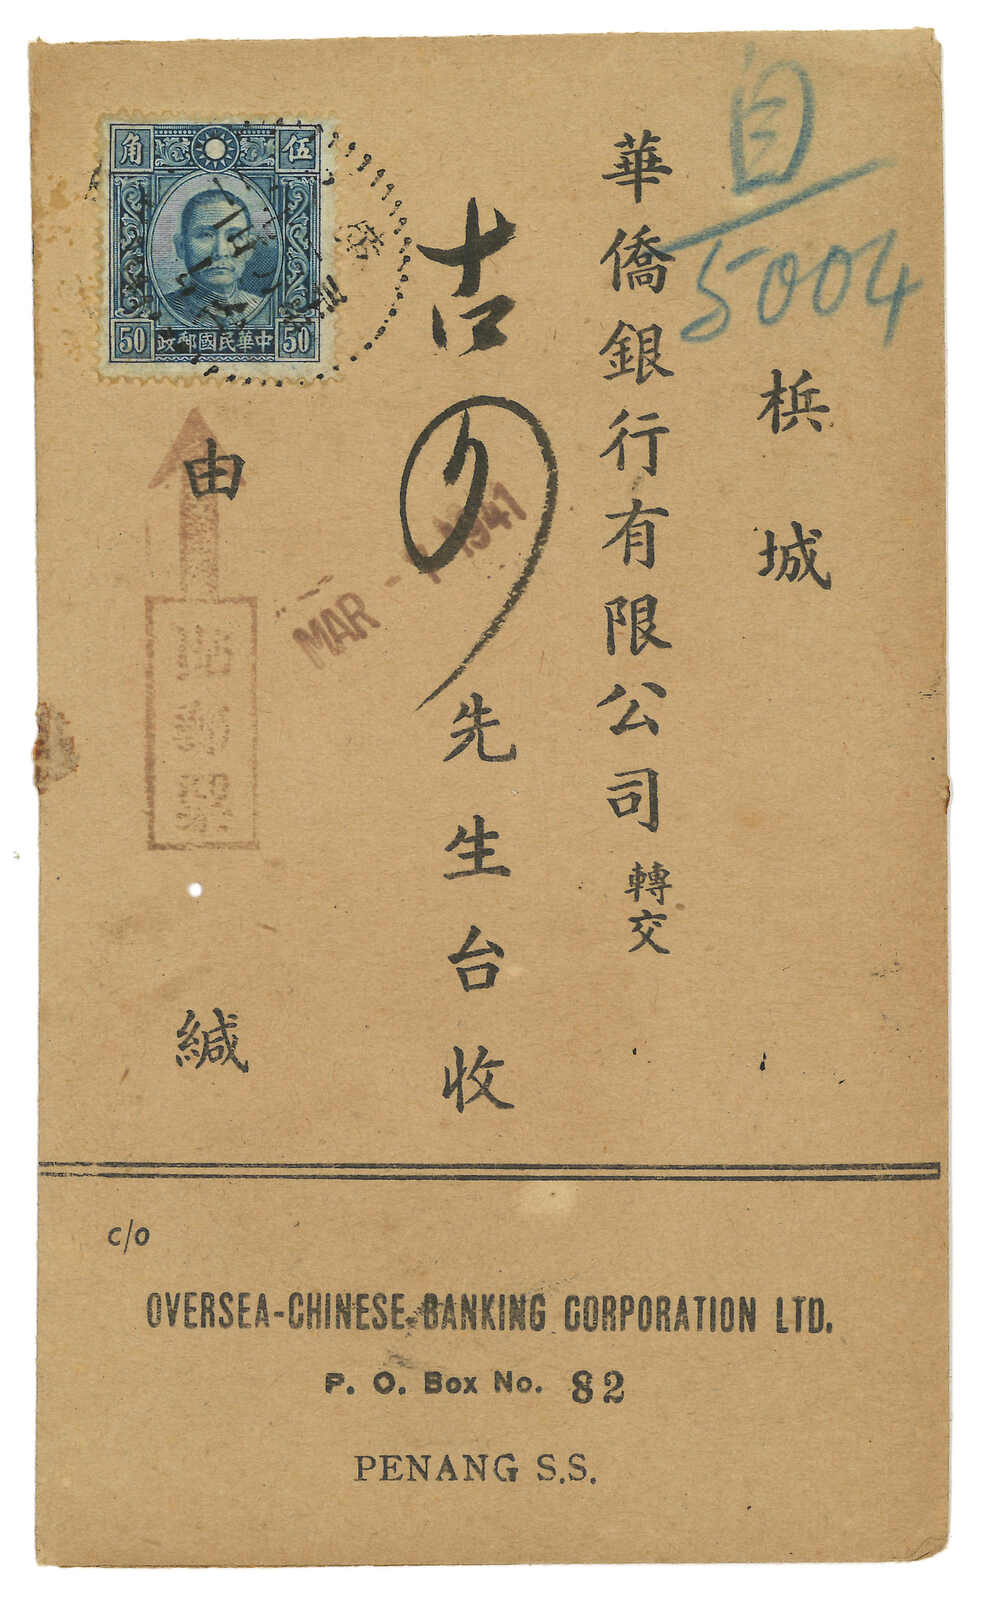 自
5004
檳城
華僑銀行有限公司轉交
古
先生台收
由
緘
角 伍
50 中華民國郵政 50
MAR - 1941
c/o
OVERSEA-CHINESE BANKING CORPORATION LTD.
P. O. Box No. 82
PENANG S.S.